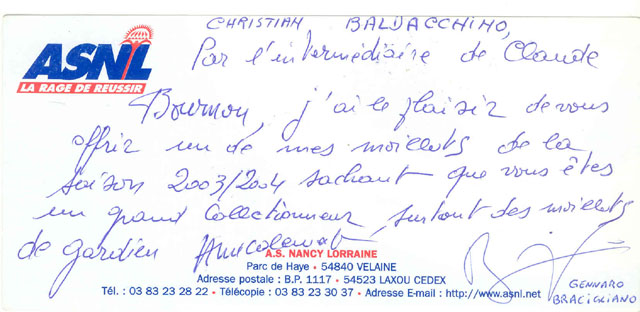 CHRISTIAN BALDACCHINO,
ASNL
LA RAGE DE REUSSIR
Par l'intermédiaire de Claude
Bournon, j'ai le plaisir de vous
offrir un de mes maillots de la
saison 2003/2004 sachant que vous êtes
un grand collectionneur surtout des maillots
de gardien Amicalement
A.S. NANCY LORRAINE
Parc de Haye • 54840 VELAINE
Adresse postale : B.P. 1117 • 54523 LAXOU CEDEX
Tél. : 03 83 23 28 22 • Télécopie : 03 83 23 30 37 • Adresse E-mail : http://www.asnl.net
GENNARO
BRACIGLIANO